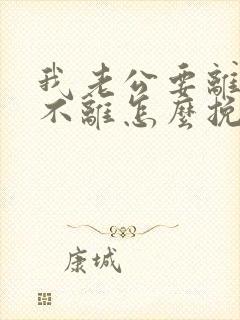 我老公要離
不離怎麼挽
康城